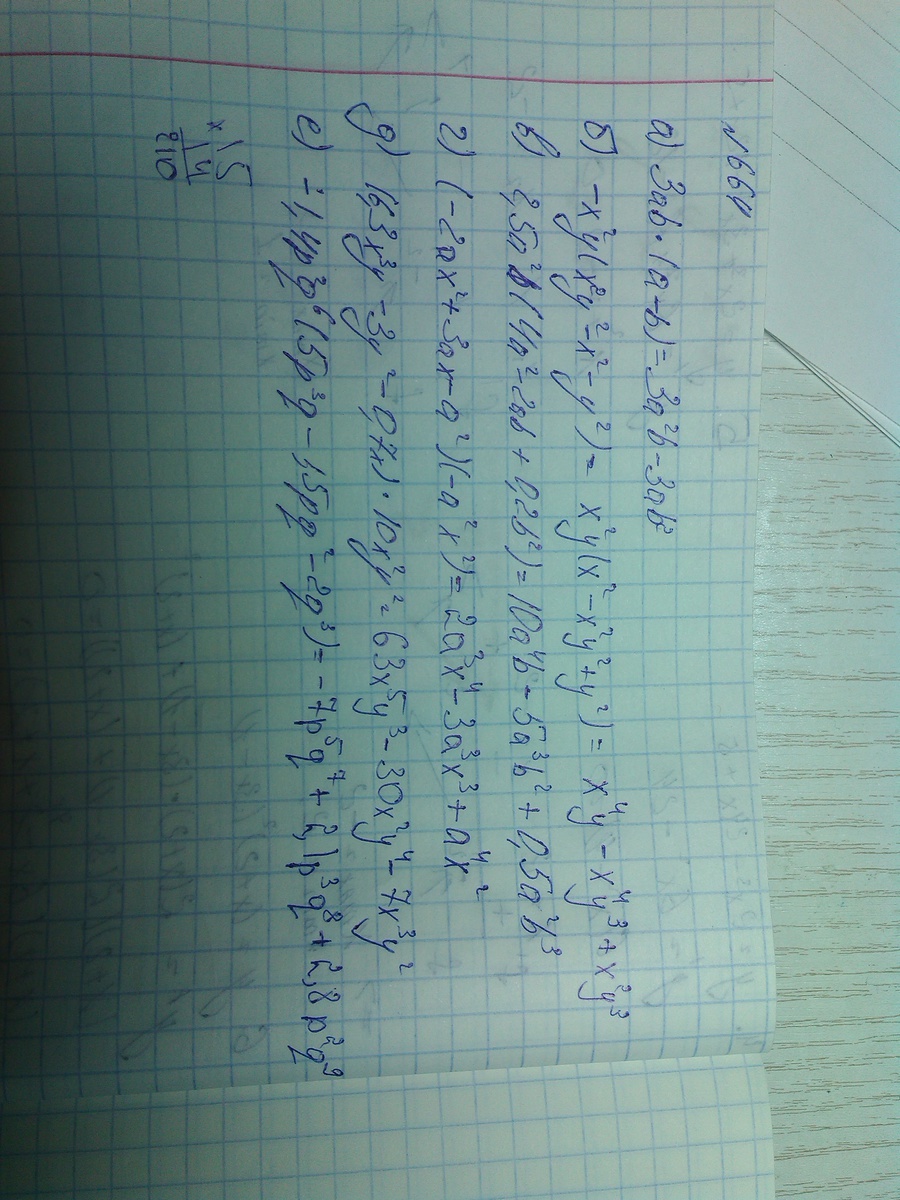 №664
а) 3ab·(a-b)=3a²b-3ab²
б) -x²y(x²y²-x²-y²)= x²y(x²-x²y²+y²)= x⁴y-x⁴y³+x²y³
в) 2,5a²b(4a²-2ab+0,2b²)=10a⁴b-5a³b²+0,5a²b³
г) (-2ax²+3ax-a²)(-a²x²)=2a³x⁴-3a³x³+a⁴x²
д) (6,3x³y-3y²-0,7x)·10x²y²=63x⁵y³-30x²y⁴-7x³y²
е) -1,4p²q⁶(5p³q-1,5pq²-2q³)=-7p⁵q⁷+2,1p³q⁸+2,8p²q⁹
15
×
14
210